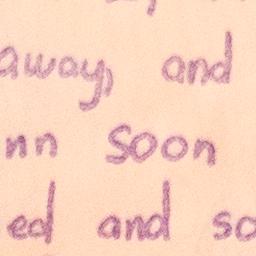 away, and
nn soon
ed and so